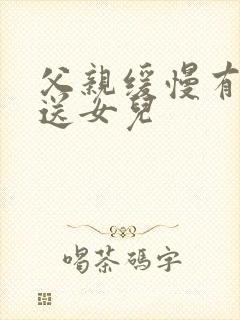 父親緩慢有
送女兒
喝茶碼字